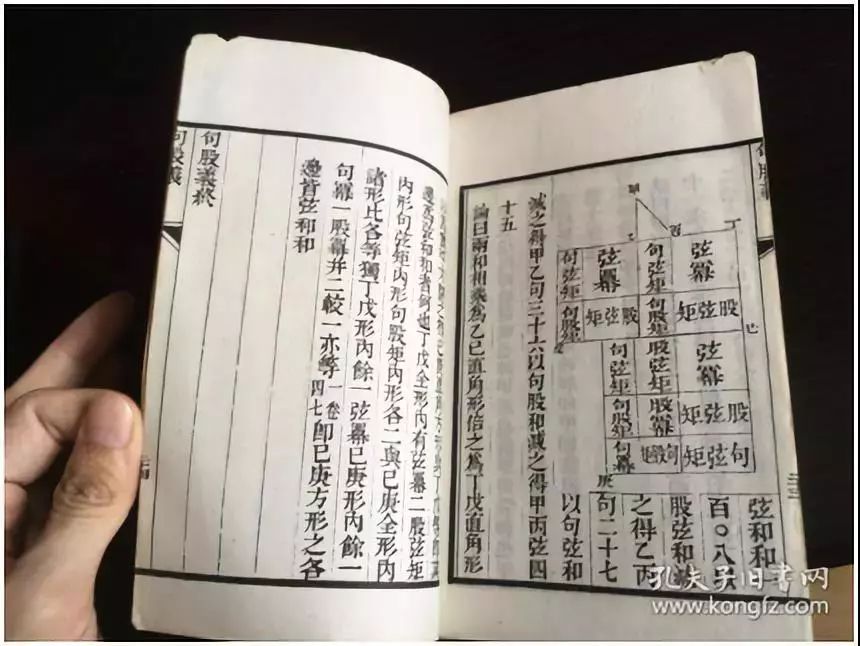 弦和和
百〇八以
股弦和減
之得乙丙
句二十七
以句弦和
減之得甲乙句三十六以句股和減之得甲丙弦四
十五
論曰兩和相乘爲乙己直角形倍之爲丁戊直角形
甲
丙
乙
丁
己
庚
弦冪
句弦矩
弦冪
句弦矩
股弦矩
句股矩
股弦矩
句股矩
弦冪
股弦矩
句弦矩
股弦矩
股冪
句股矩
句弦矩
句股矩
句冪
內形句弦矩內形句股矩內形各二與己庚全形內
諸形比各等獨丁戊形內餘一弦冪己庚形內餘一
句冪一股冪并二較一亦等一卷四七卽己庚方形之各
邊皆弦和和
句股義終
孔夫子旧书网
www.kongfz.com